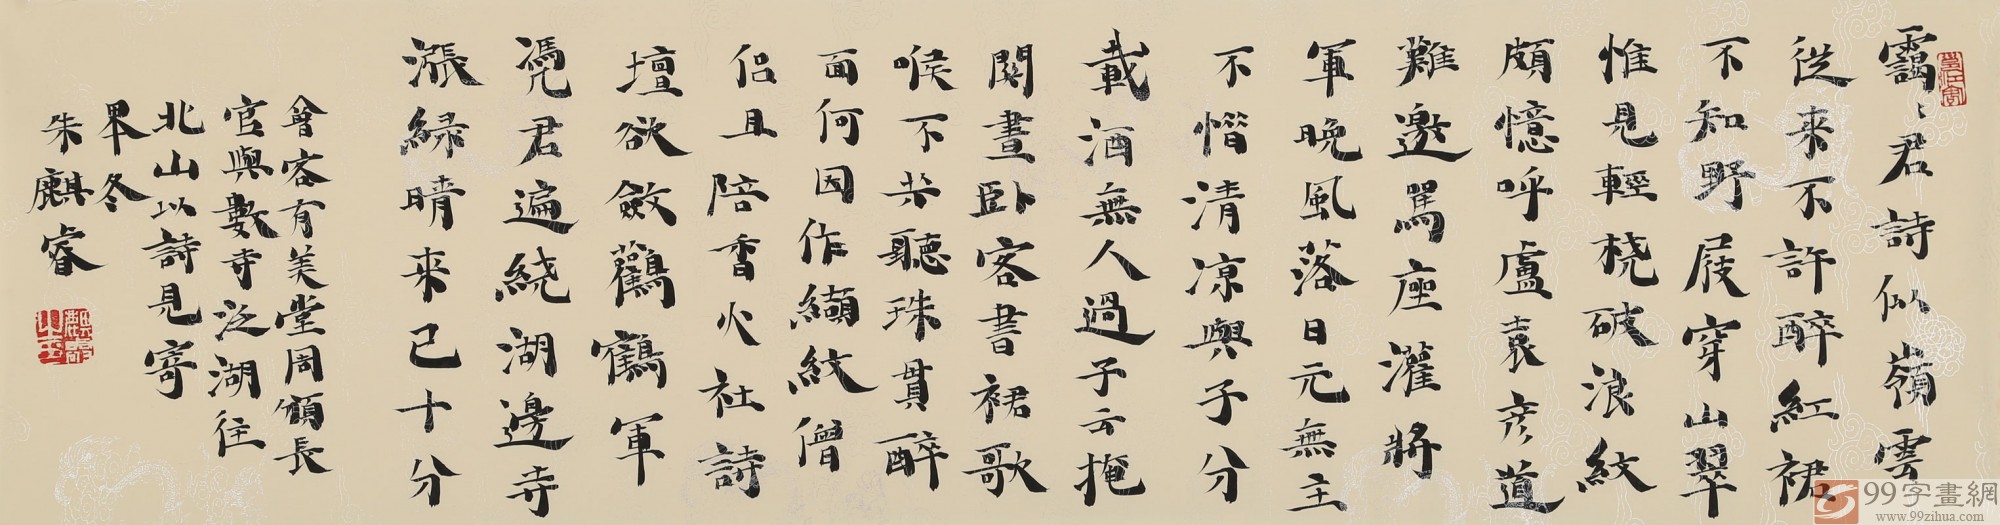 靄〻君詩似嶺雲
從来不許醉紅裙
不知野屐穿山翠
惟見輕橈破浪紋
頗憶呼盧袁彦道
難邀罵座灌將
軍晚風落日元無主
不惜清凉與子分
載酒無人過子云掩
關晝臥客書裙歌
喉不共聽珠貫醉
面何因作纈紋僧
侣且陪香火社詩
壇欲斂鸛鶴軍
憑君遍繞湖邊寺
漲緑晴来已十分
會客有美堂周長
官與數寺泛湖往
北山以詩見寄
冬
朱麒睿
99字畫網
www.99zihua.com